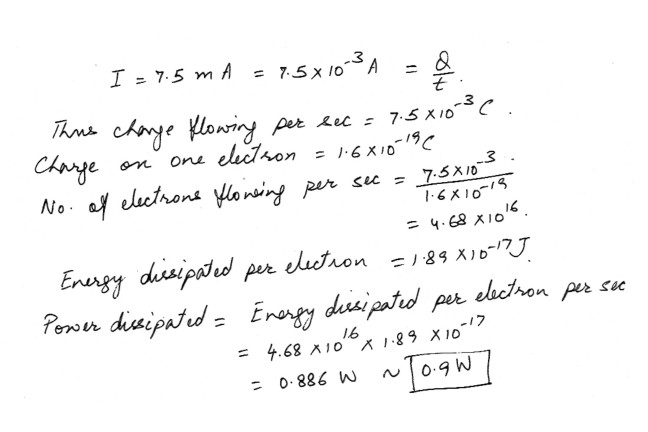 I = 7.5 mA = 7.5 x 10⁻³ A = Q/t.
Thus charge flowing per sec = 7.5 x 10⁻³ C.
Charge on one electron = 1.6 x 10⁻¹⁹ C
No. of electrons flowing per sec = 7.5 x 10⁻³ / 1.6 x 10⁻¹⁹.
= 4.68 x 10¹⁶.
Energy dissipated per electron = 1.89 x 10⁻¹⁷ J.
Power dissipated = Energy dissipated per electron per sec
= 4.68 x 10¹⁶ x 1.89 x 10⁻¹⁷
= 0.886 W ~ 0.9 W